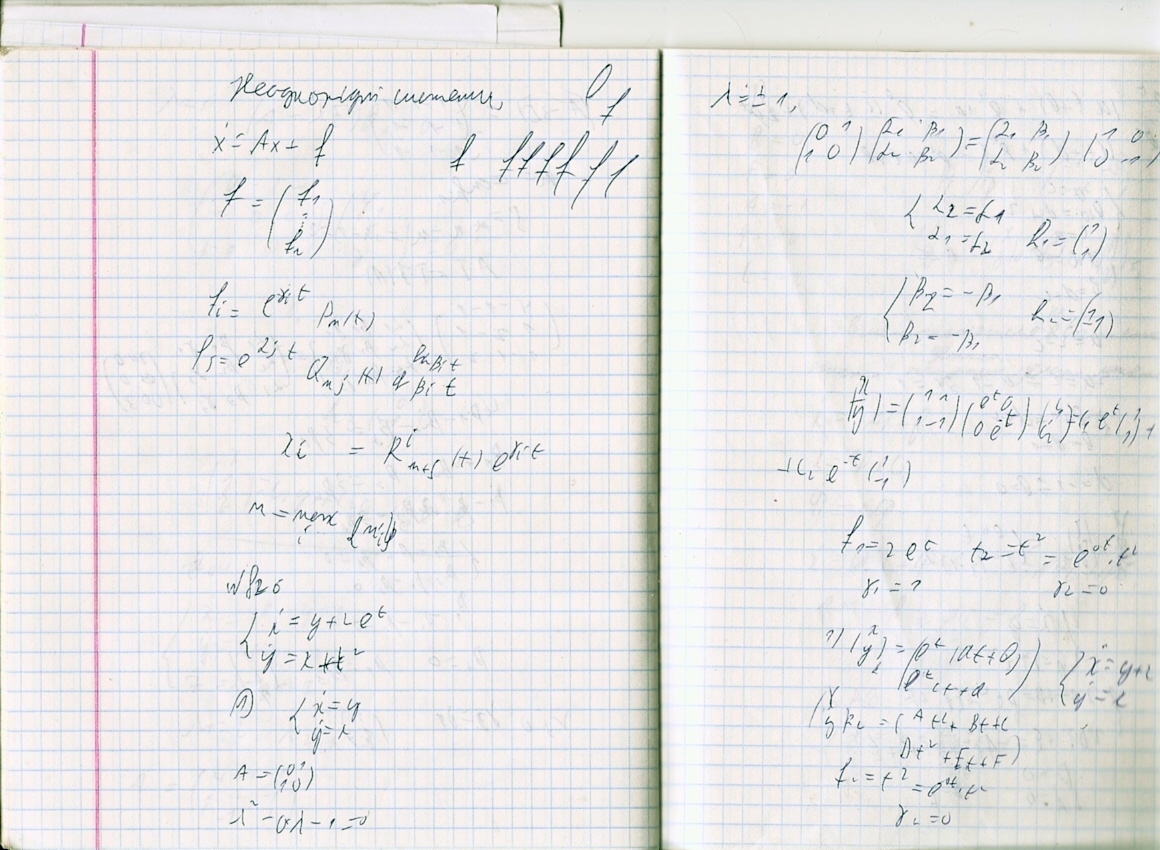 Неоднорідні системи,
ẋ = Ax + f
f f f f f f f
f = (f₁ ⋮ fₙ)
fᵢ = e^{γᵢt} Pₘ(t)
= R^i_{m+s}(t) e^{γᵢt}
m = max_i {mᵢ}
№826
{ ẋ = y + 2e^t
ẏ = x + t²
1) { ẋ = y
ẏ = x
A = (0 1
1 0)
λ² - 0λ - 1 = 0
λ = ± 1,
(0 1
1 0) (α₁ β₁
α₂ β₂) = (α₁ β₁
α₂ β₂) (1 0
0 -1)
{ α₂ = α₁
α₁ = α₂ h₁ = (1
1)
{ β₂ = -β₁
β₂ = -β₁ h₂ = (1
-1)
(x
y) = (1 1
1 -1) (e^t 0
0 e^{-t}) (C₁
C₂) = C₁ e^t (1
1) +
+ C₂ e^{-t} (1
-1)
f₁ = 2e^t f₂ = t² = e^{0t}·t²
γ₁ = 1 γ₂ = 0
1) (x
y) = (e^t (at+b)
e^t ct+d) { ẋ = y+2
ẏ = x
(x
y)_{2} = (At² + Bt + C
Dt² + Et + F)
f₂ = t² = e^{0t}·t²
γ₂ = 0